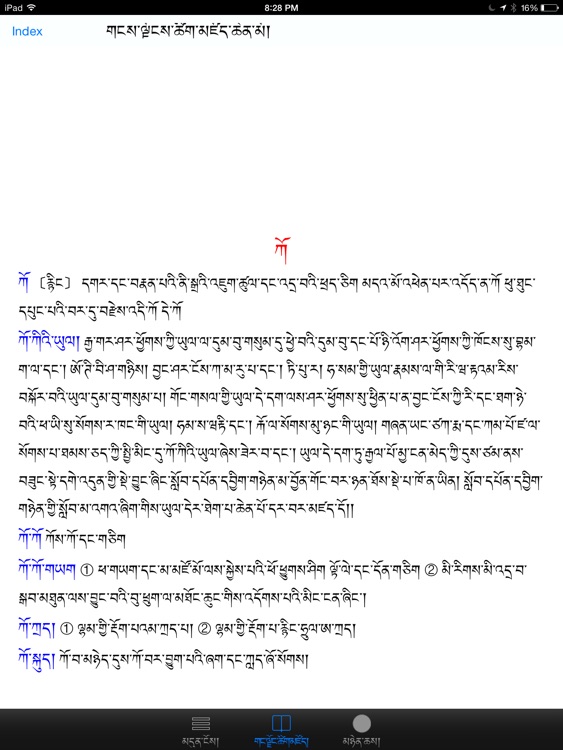 iPad 8:28 PM 16%
Index གངས་ལྗོངས་ཚིག་མཛོད་ཆེན་མོ།
ཀོ
ཀོ 〔རྙིང〕 དགར་དང་བརྣན་པའི་ནི་སྒྲའི་འཇུག་ཚུལ་དང་འདྲ་བའི་ཕྲད་ཅིག མདའ་མོ་འཕེན་པར་འདོད་ན་ཀོ ཕུ་ཐུང་
དཔུང་པའི་བར་དུ་བརྫེས་འདི་ཀོ དེ་ཀོ
ཀོ་ཀིའི་ཡུལ། རྒྱ་གར་ཤར་ཕྱོགས་ཀྱི་ཡུལ་ལ་དུམ་བུ་གསུམ་དུ་ཕྱེ་བའི་དུམ་བུ་དང་པོ་ཧི་འོག་ཤར་ཕྱོགས་ཀྱི་ཁོངས་སུ་བྷམ་
ག་ལ་དང༌། ཨོ་ཌི་བི་ཤ་གཉིས། བྱང་ཤར་ངོས་ཀ་མ་རུ་པ་དང༌། ཏི་པུ་ར། ཧ་སམ་གྱི་ཡུལ་རྣམས་ལ་གི་རི་ཝ་རྟའམ་རིས་
བསྐོར་བའི་ཡུལ་དུམ་བུ་གསུམ་པ། གོང་གསལ་གྱི་ཡུལ་དེ་དག་ལས་ཤར་ཕྱོགས་སུ་ཕྱིན་པ་ན་བྱང་ངོས་ཀྱི་རི་དང་ཐག་ཉེ་
བའི་ཕ་ཡི་སུ་སོགས་ར་ཁང་གི་ཡུལ། ཧམ་ས་ཝ་ཏི་དང༌། རྐོ་ལ་སོགས་མུ་ཉང་གི་ཡུལ། གཞན་ཡང་ཙཀ་རྨ་དང་ཀམ་པོ་ཛ་ལ་
སོགས་པ་ཐམས་ཅད་ཀྱི་སྤྱི་མིང་དུ་ཀོ་ཀིའི་ཡུལ་ཞེས་ཟེར་བ་དང༌། ཡུལ་དེ་དག་ཏུ་རྒྱལ་པོ་མྱ་ངན་མེད་ཀྱི་དུས་ཙམ་ནས་
བཟུང་སྟེ་དགེ་འདུན་གྱི་སྡེ་བྱུང་ཞིང་སློབ་དཔོན་དབྱིག་གཉེན་མ་བྱོན་གོང་བར་ཉན་ཐོས་སྡེ་པ་ཁོ་ན་ཡིན། སློབ་དཔོན་དབྱིག་
གཉེན་གྱི་སློབ་མ་འགའ་ཞིག་གིས་ཡུལ་དེར་ཐེག་པ་ཆེན་པོ་དར་བར་མཛད་དོ།།
ཀོ་ཀོ ཀོས་ཀོ་དང་གཅིག
ཀོ་ཀོ་གཡག ① ཕ་གཡག་དང་མ་མཛོ་མོ་ལས་སྐྱེས་པའི་ཕོ་ཕྱུགས་ཤིག ལྟོ་ལེ་དང་དོན་གཅིག ② མི་རིགས་མི་འདྲ་བ་
སྒབ་མཐུན་ལས་བྱུང་བའི་བུ་ཕྲུག་ལ་མཐོང་ཆུང་གིས་འདོགས་པའི་མིང་ངན་ཞིང༌།
ཀོ་ཀྲད། ① ལྷམ་གྱི་རྡོག་པའམ་ཀྲད་པ། ② ལྷམ་གྱི་རྡོག་པ་རྙིང་ཧྲུལ་ཨ་ཀྲད།
ཀོ་སྐུད། ཀོ་བ་མཉེད་དུས་ཀོ་བར་བྱུག་པའི་ཞག་དང་ཀླད་ཞོ་སོགས།
མདུན་ངོས། གངས་ལྗོངས་ཚིག་མཛོད། མཉེན་ཆས།